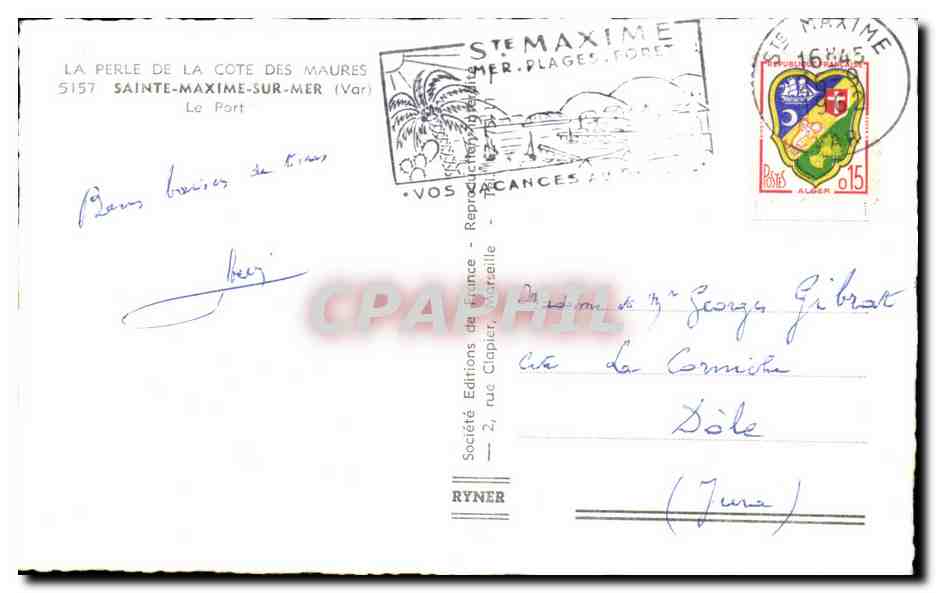 LA PERLE DE LA COTE DES MAURES
5157 SAINTE-MAXIME-SUR-MER (Var)
Le Port
STE MAXIME
MER. PLAGES. FORET
• VOS VACANCES
STE MAXIME
16H45
REPUBLIQUE FRANCAISE
POSTES
0,15
ALGER
Bons baisers de tous
Société Editions de France - Reproduction interdite
— 2, rue Clapier, Marseille -
CPAPHIL
Mr Georges Gibrat
Cité La Corniche
Dôle
(Jura)
RYNER